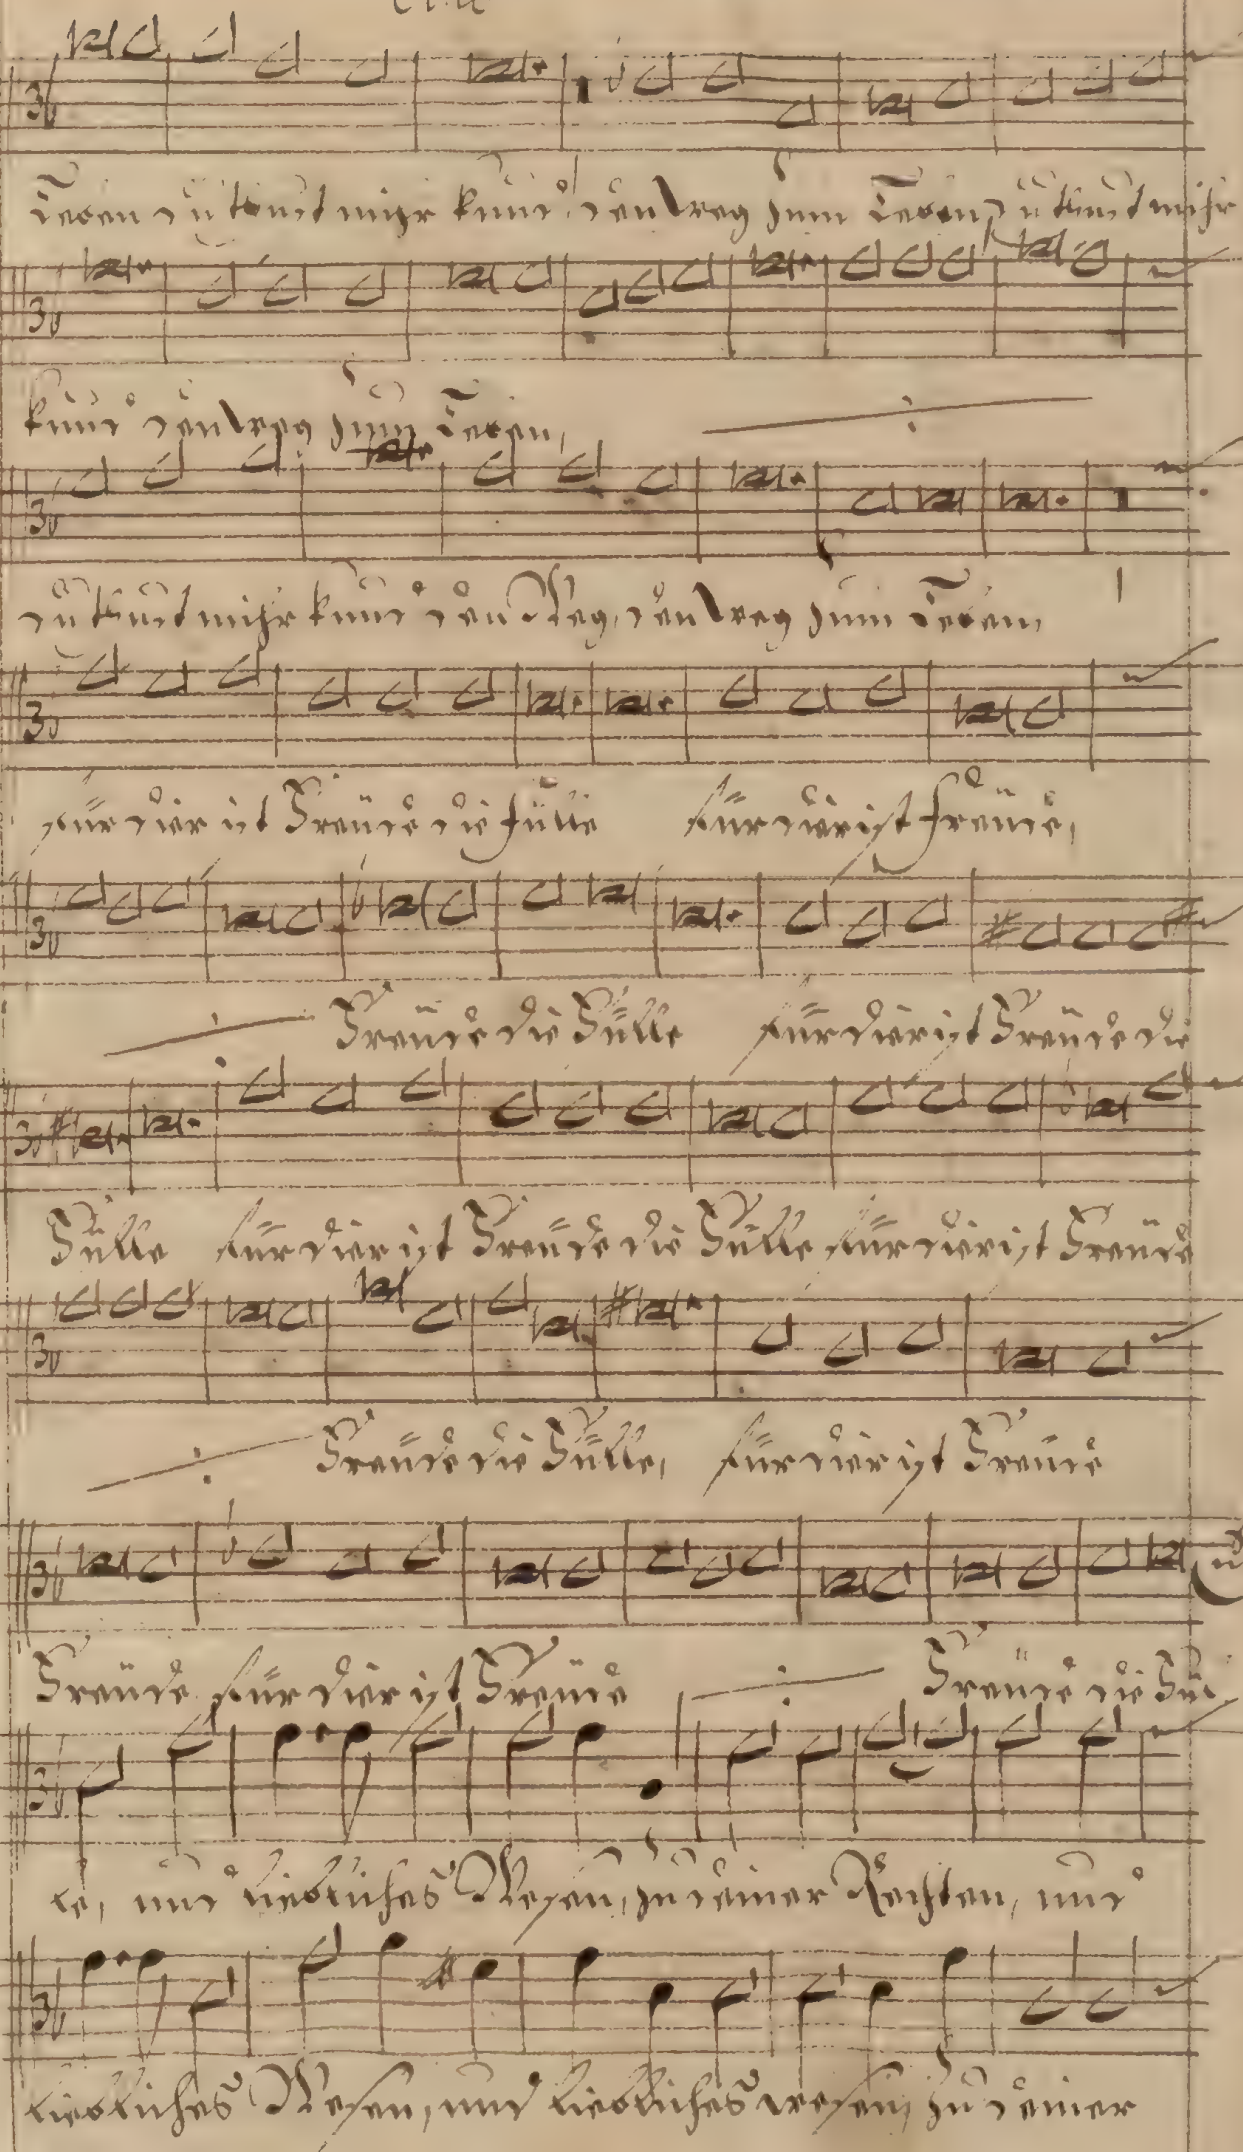 Leben du thust mihr kund, den weg zum Leben, du thust mihr
kund den weg zum Leben,
du thust mihr kund den Weg, den weg zum Leben,
für dier ist Freüde die fülle für dier ist freüde,
Freüde die Fülle für dier ist Freüde die
Fülle für dier ist Freüde die Fülle für dier ist Freüde
Freüde die Fülle, für dier ist Freüde
Freüde für dier ist Freüde Freüde die Fül
le, und liebliches Wesen, zu deiner Rechten, und
liebliches Wesen, und liebliches wesen, zu deiner